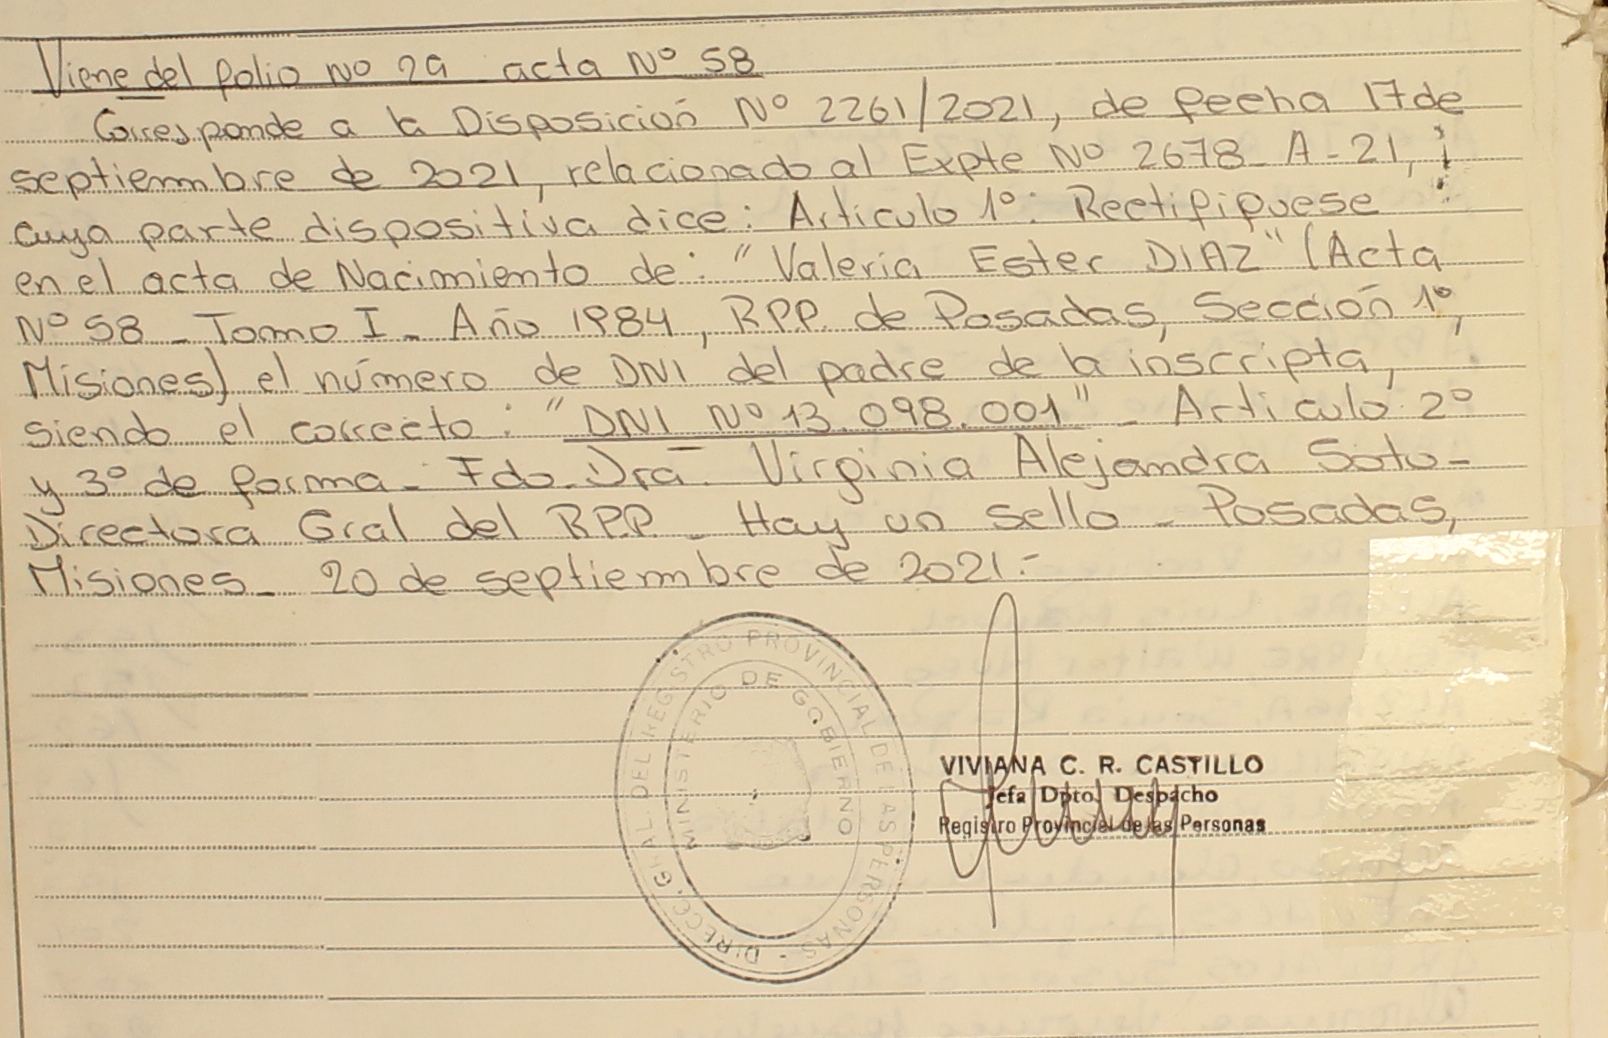 Viene del folio No 29 acta Nº 58
Corresponde a la Disposición Nº 2261/2021, de fecha 17 de
septiembre de 2021, relacionado al Expte Nº 2678 - A - 21,
cuya parte dispositiva dice: Articulo 1º: Rectifiquese
en el acta de Nacimiento de: "Valeria Ester DIAZ" (Acta
Nº 58 - Tomo I - Año 1984, R.P.P. de Posadas, Sección 1º,
Misiones) el número de DNI del padre de la inscripta,
siendo el correcto: "DNI Nº 13.098.001" - Articulo 2º
y 3º de forma - Fdo. Dra. Virginia Alejandra Soto -
Directora Gral del R.P.P. - Hay un sello - Posadas,
Misiones - 20 de septiembre de 2021.-
DIRECC. GRAL. DEL REGISTRO PROVINCIAL DE LAS PERSONAS -
MINISTERIO DE GOBIERNO
VIVIANA C. R. CASTILLO
Jefa Dpto. Despacho
Registro Provincial de las Personas